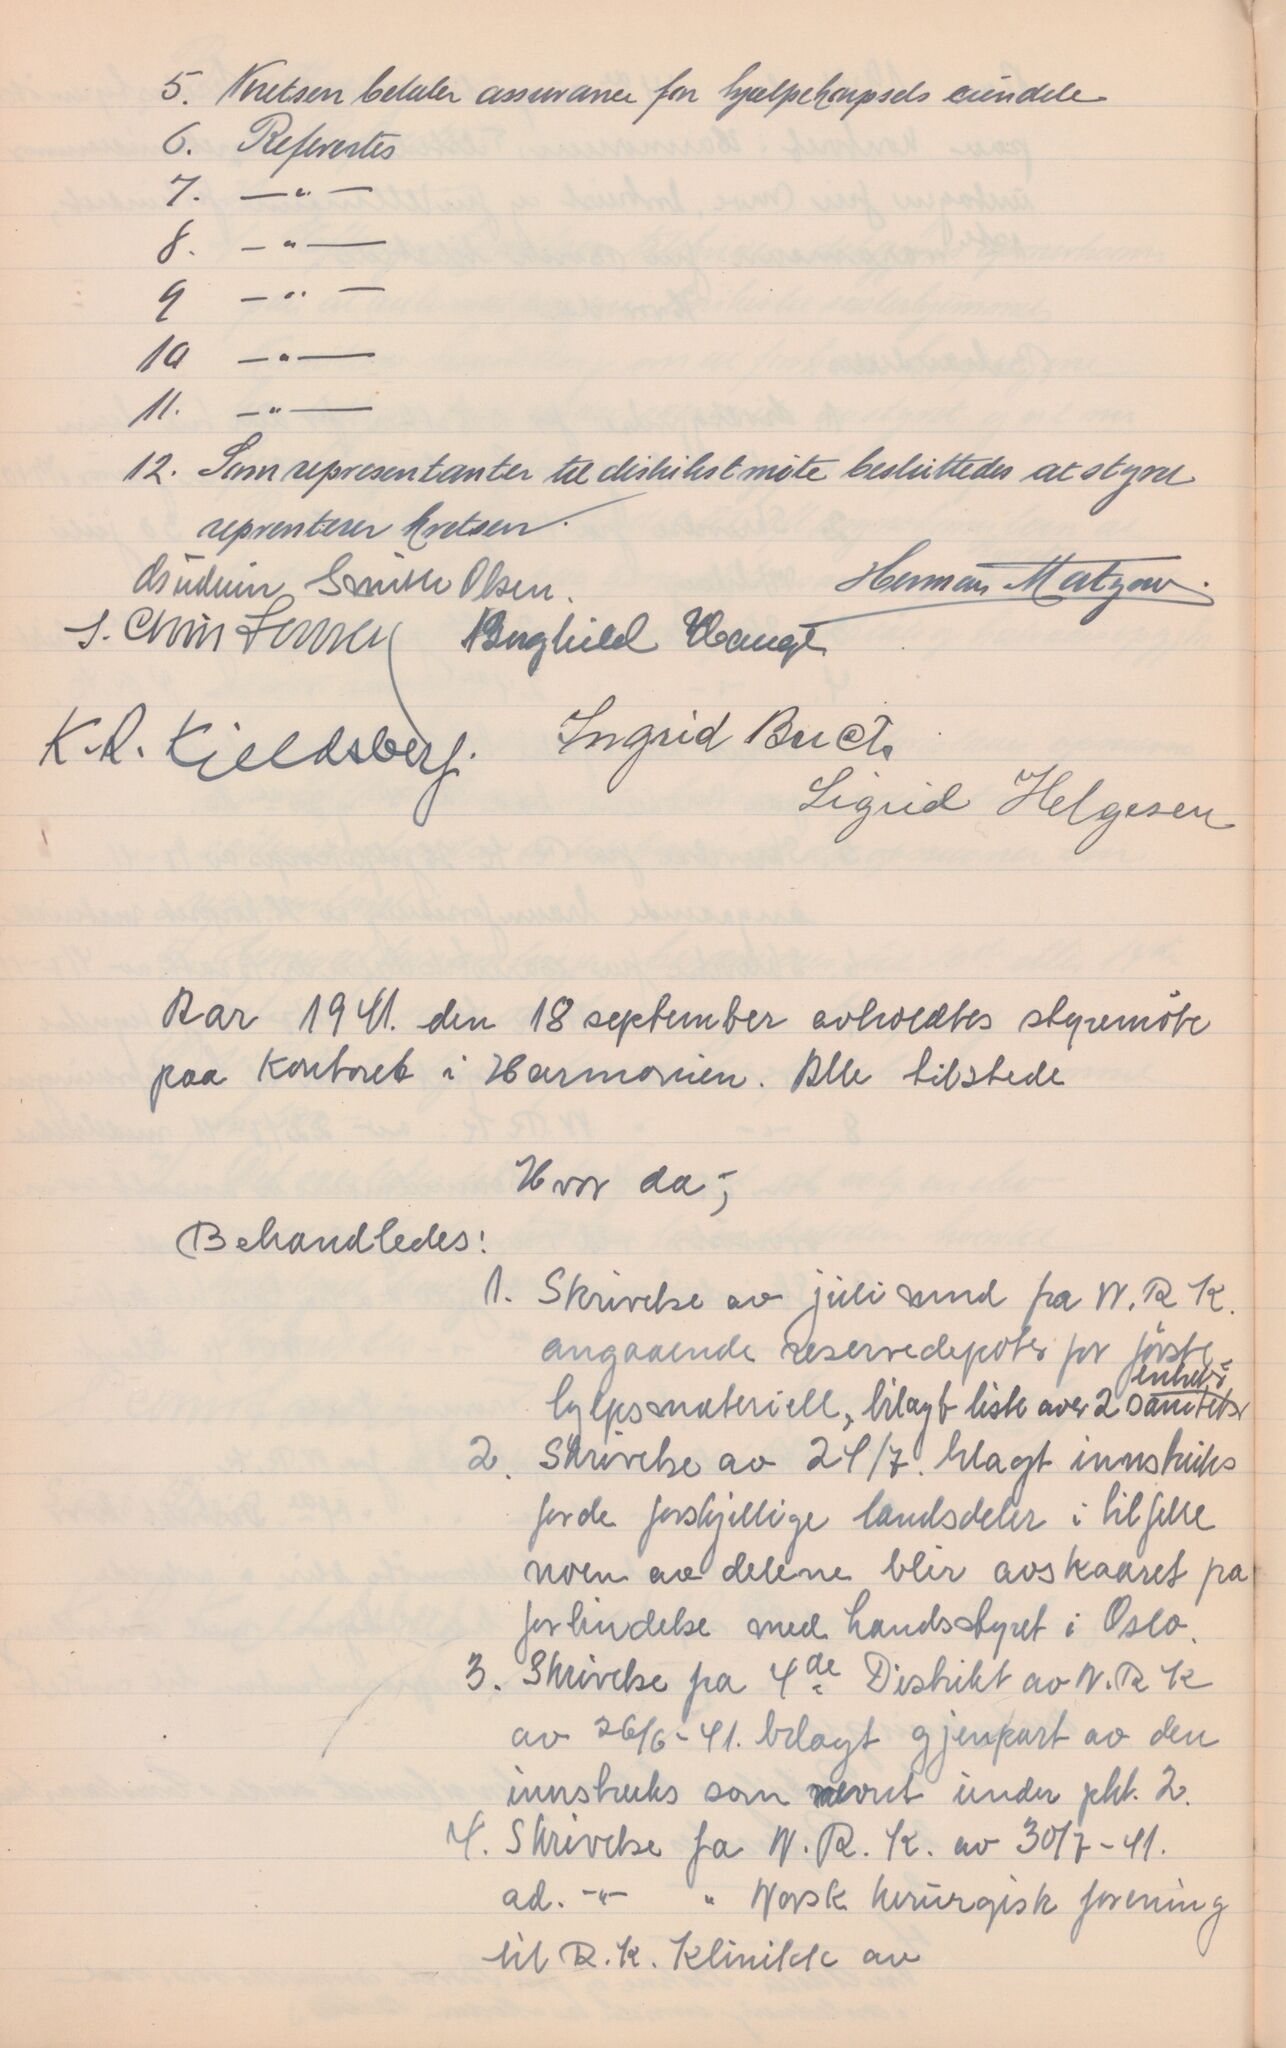 5. Kretsen betaler assurance for hjælpekorpsets eiendele
6. Refertes
7. —"—
8. —"—
9 —"—
10 —"—
11. —"—
12. Som representanter til distriktsmøte besluttedes at styret
reprenterer kretsen.
Smith Olsen. Herman Matzow.
S. Chris Borghild Haugt
K. R. Kjeldsberg. Ingrid Buch
Sigrid Helgesen
Aar 1941. den 18 september avholdtes styremöte
paa Kontoret i Harmonien. Alle tilstede
Hvor da;
Behandledes:
1. Skrivelse av juli mnd fra N. R. K.
angaaende reservedepoter for förste
hjelpsmateriell, bilagt liste over 2 sanitets
enheter
2. Skrivelse av 24/7. bilagt innstruks
for de forskjellige landsdeler i tilfelle
noen av delene blir avskaaret fra
forbindelse med handsstyret i Oslo.
3. Skrivelse fra 4de Distrikt av N. R. K
av 26/6-41. bilagt gjenpart av den
innstruks som nevnt under pkt. 2.
4. Skrivelse fra N. R. K. av 30/7-41.
ad. -"- " Norsk kirurgisk forening
til R. K. Klinikk av